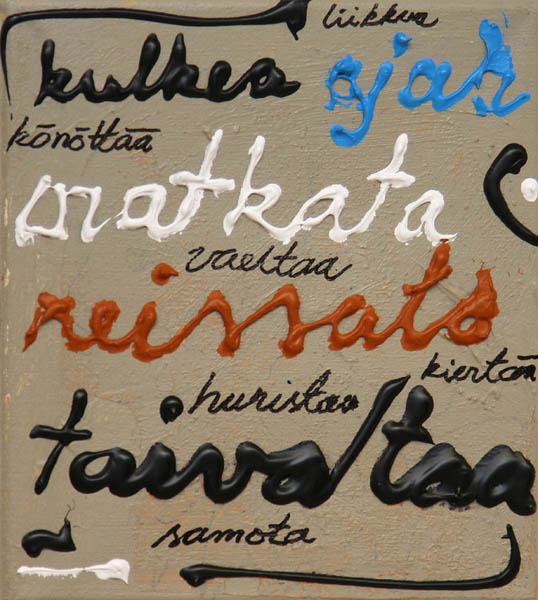 liikkua
kulkea ajah
könöttää
matkata
vaeltaa
reissata
kiertää
huristaa
taivaltaa
samota